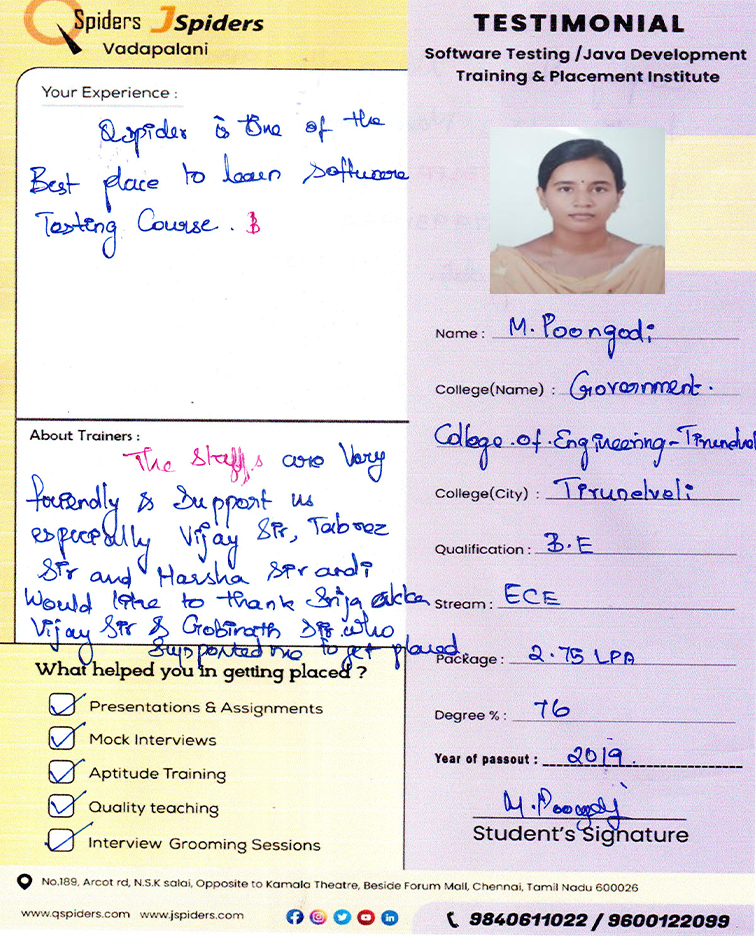 QSpiders JSpiders
Vadapalani
Your Experience :
Qspider is One of the
Best place to learn Software
Testing Course.
About Trainers :
The Staffs are Very
friendly & Support us
especially Vijay Sir, Tabrez
Sir and Harsha Sir and i
Would like to thank Srija akka
Vijay Sir & Gobinath Sir who
Supported me to get placed.
What helped you in getting placed ?
Presentations & Assignments
Mock Interviews
Aptitude Training
Quality teaching
Interview Grooming Sessions
TESTIMONIAL
Software Testing /Java Development
Training & Placement Institute
Name : M. Poongodi
College(Name) : Government.
College of Engineering - Tirunelveli
College(City) : Tirunelveli
Qualification : B.E
Stream : ECE
Package : 2.75 LPA
Degree % : 76
Year of passout : 2019.
M. Poongodi
Student's Signature
No.189, Arcot rd, N.S.K salai, Opposite to Kamala Theatre, Beside Forum Mall, Chennai, Tamil Nadu 600026
www.qspiders.com www.jspiders.com
9840611022 / 9600122099